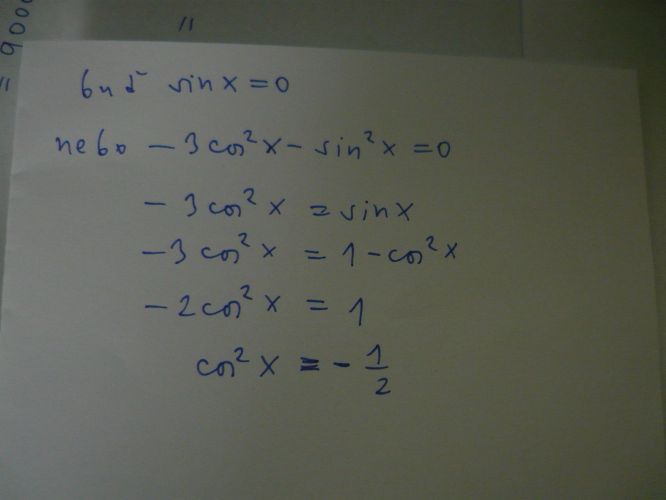 9000
"
"
buď sin x = 0
nebo - 3 cos² x - sin² x = 0
- 3 cos² x = sin x
- 3 cos² x = 1 - cos² x
- 2 cos² x = 1
cos² x = - 1/2